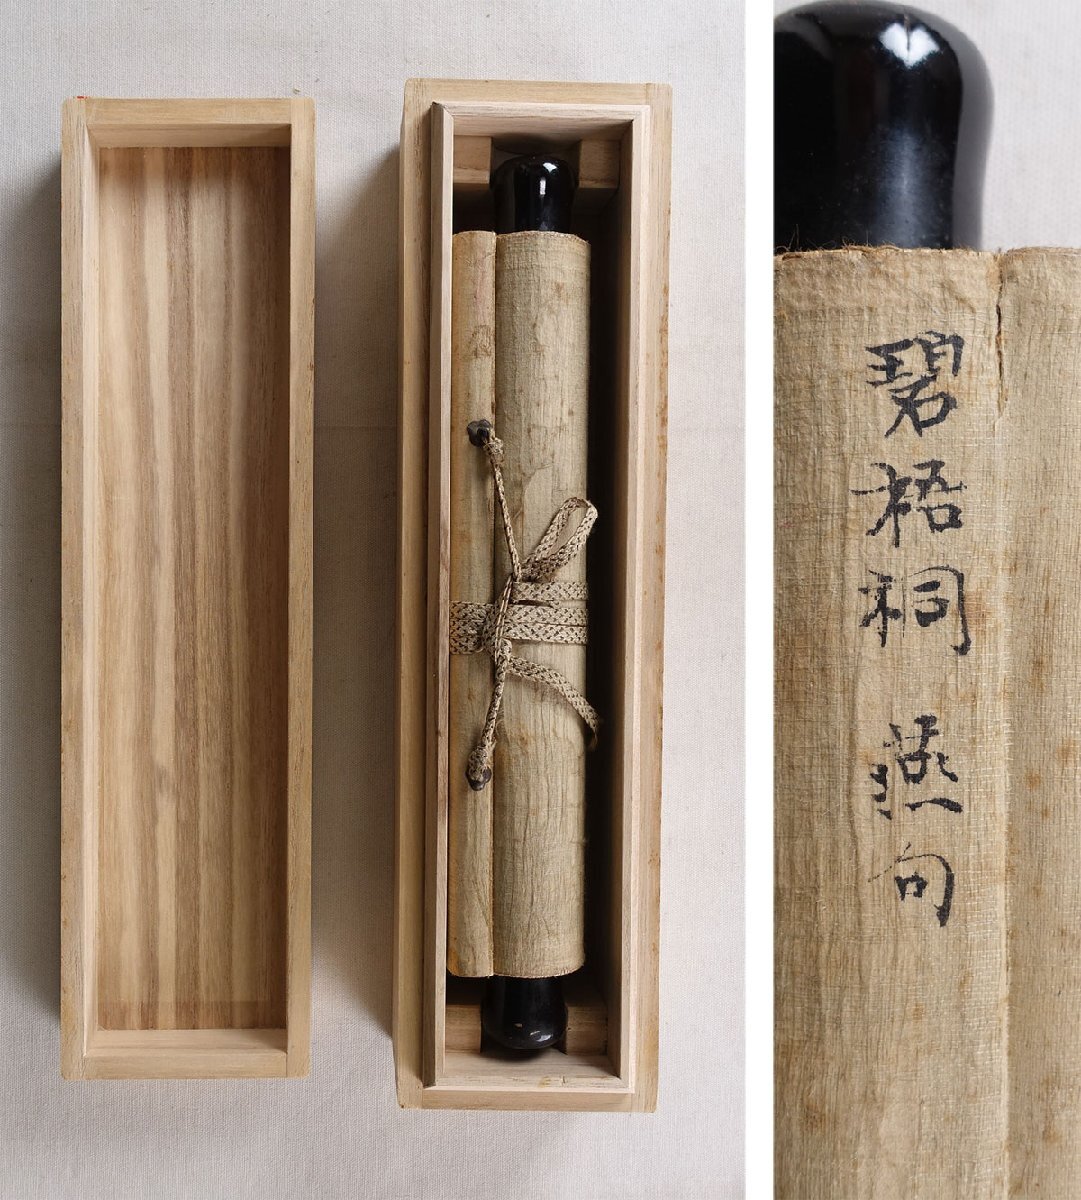 碧梧桐 燕句